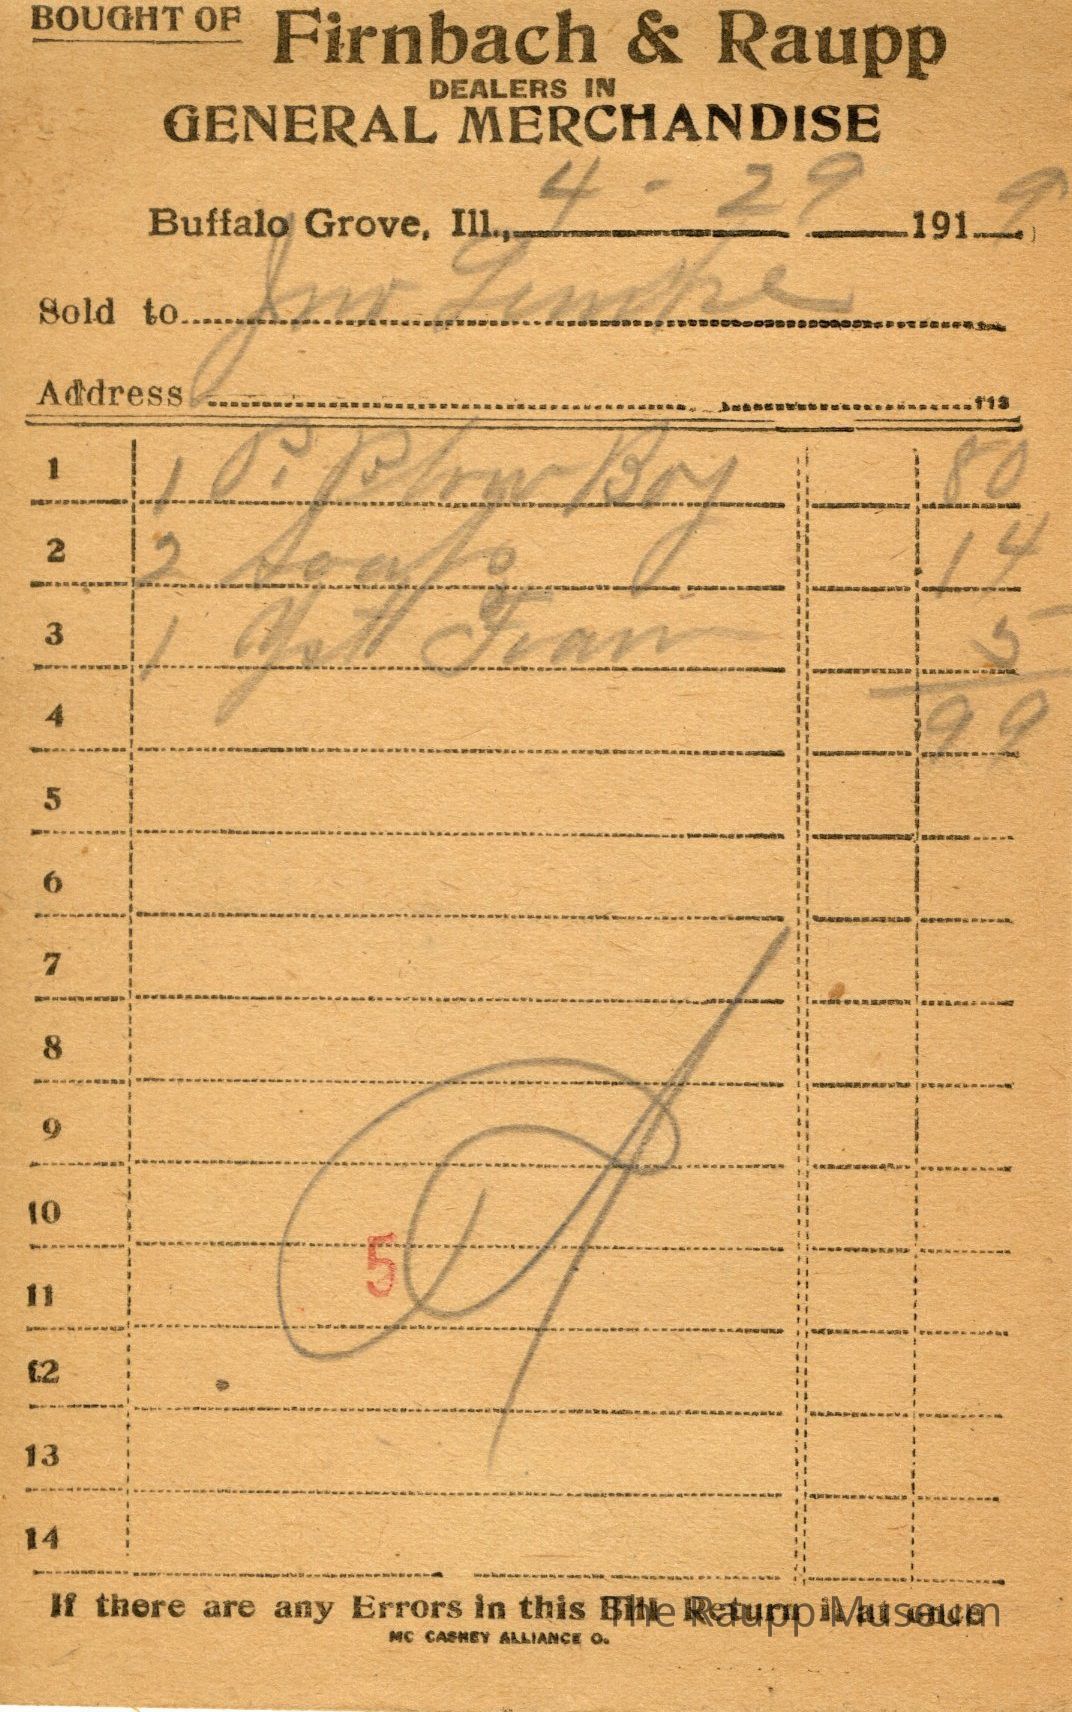 BOUGHT OF Firnbach & Raupp
DEALERS IN
GENERAL MERCHANDISE
Buffalo Grove, Ill., 4 - 29 1919
Sold to Jno
Address
113
1 1 P. Plow Boy 80
2 2 Soaps 14
3 1 Yst 5
4 99
5
6
7
8
9
10
5
11
12
13
14
If there are any Errors in this Bill Return it at once
The Raupp Museum
MC CASKEY ALLIANCE O.